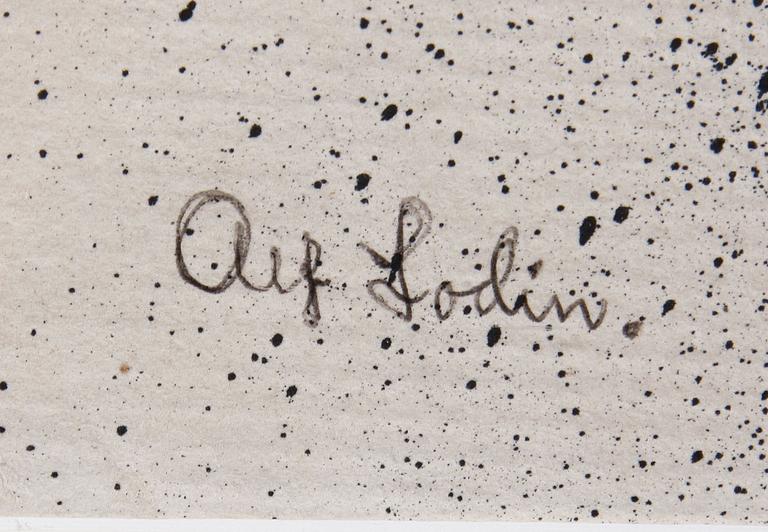 Alf Lodin.